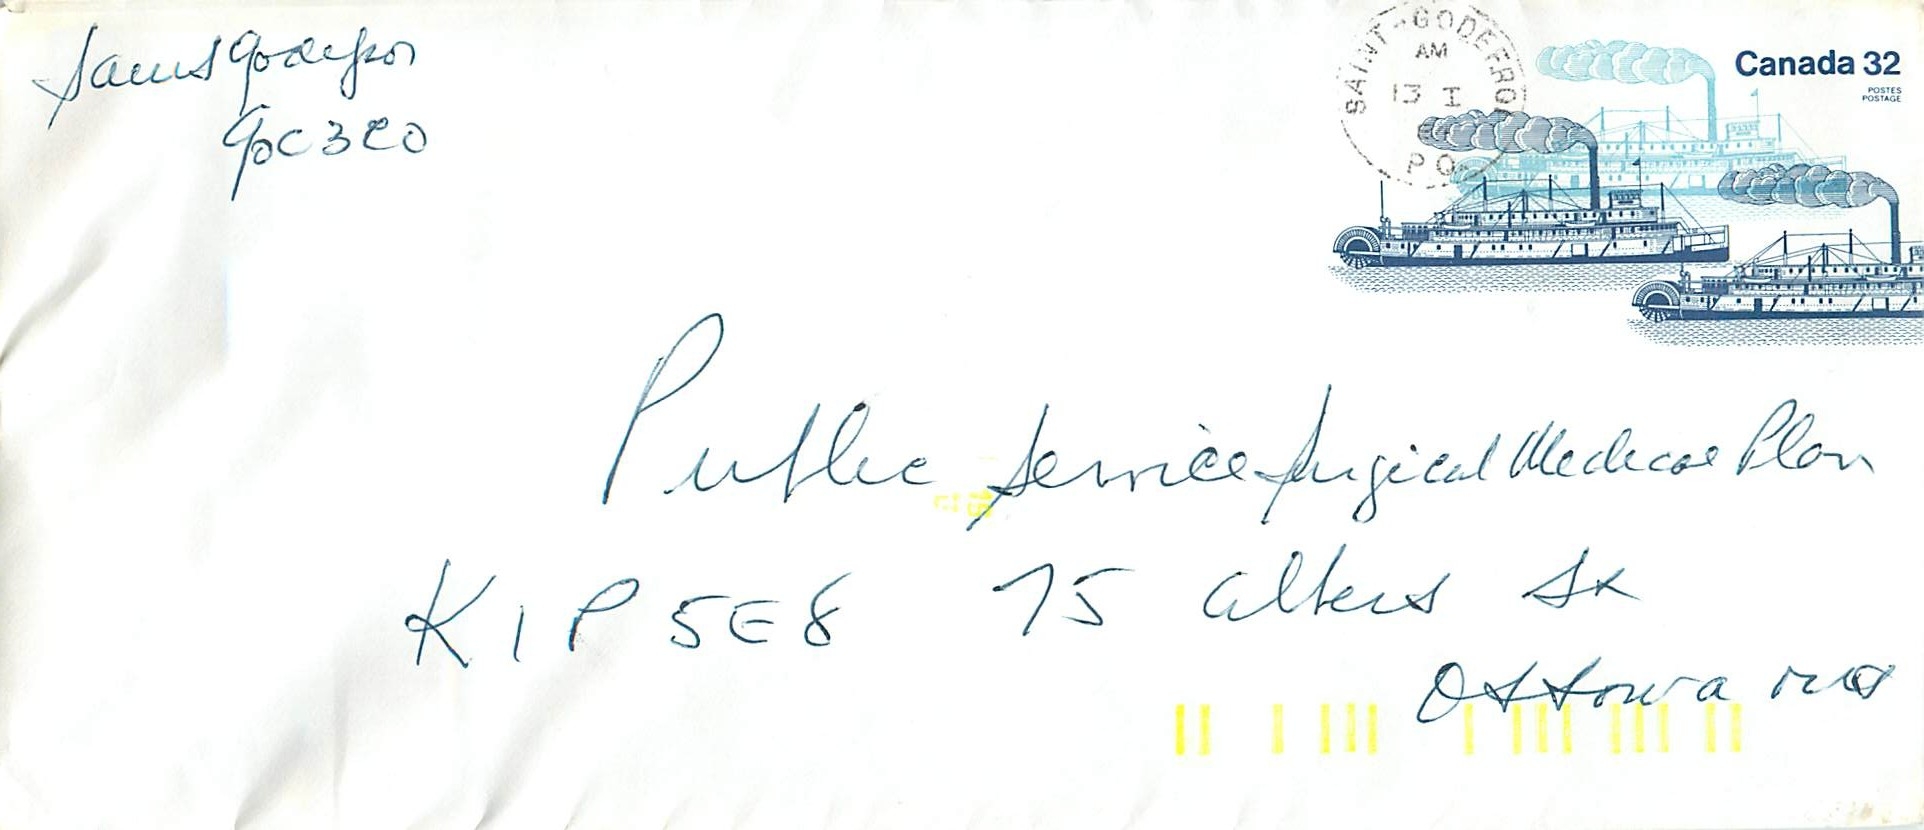 Saint Godefroi
G0C 3C0
SAINT-GODEFROI
AM
13 I
P.Q.
Canada 32
POSTES
POSTAGE
Public Service Surgical Medical Plan
K1P 5E8 75 Albert St
Ottawa